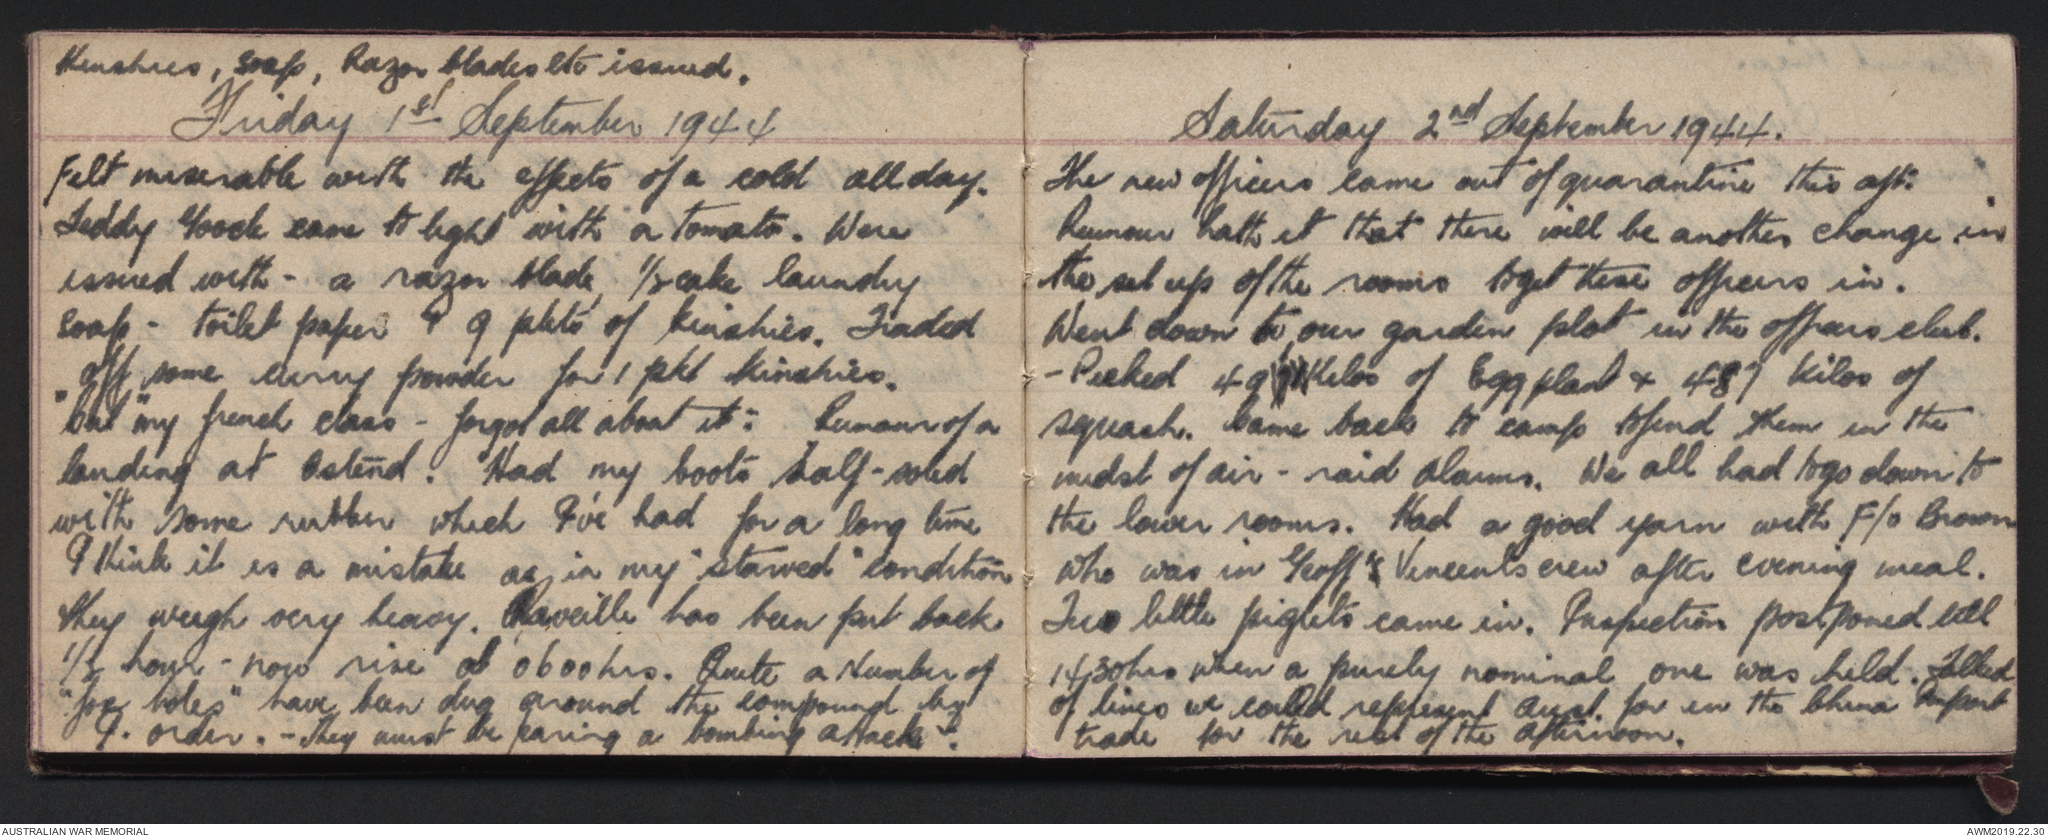 Kinshies, soap, Razor blades etc issued.
Friday 1st September 1944
Felt miserable with the effects of a cold all day.
Teddy Goode came to light with a tomato. Were
issued with - a razor blade, 1/2 cake laundry
soap - toilet paper & 9 pkts of kinshies. Traded
"off" some curry powder for 1 pkt Kinshies.
"Cut" my french class - forgot all about it. Rumour of a
landing at Ostend. Had my boots half-soled
with some rubber which I've had for a long time
I think it is a mistake as in my "starved" condition
they weigh very heavy. Raveille has been put back
1/2 hour - now rise at 0600hrs. Quite a Number of
"fox holes" have been dug around the compound by
J. order. - They must be fearing a bombing attack.
Saturday 2nd September 1944.
The new officers came out of quarantine this aft.
Rumour hath it that there will be another change in
the set up of the rooms to get these officers in.
Went down to our garden plot in the officers club.
- Picked 49 Kilos of Egg plant & 487 Kilos of
squash. Came back to camp to find them in the
midst of air - raid alarms. We all had to go down to
the lower rooms. Had a good yarn with F/O Brown
who was in Geoff Vincent's crew after evening meal.
Two little piglets came in. Inspection postponed till
1430hrs when a purely nominal one was held. Talked
of lines we could represent Aust. for in the China Import
trade for the rest of the afternoon.
AUSTRALIAN WAR MEMORIAL
AWM2019.22.30